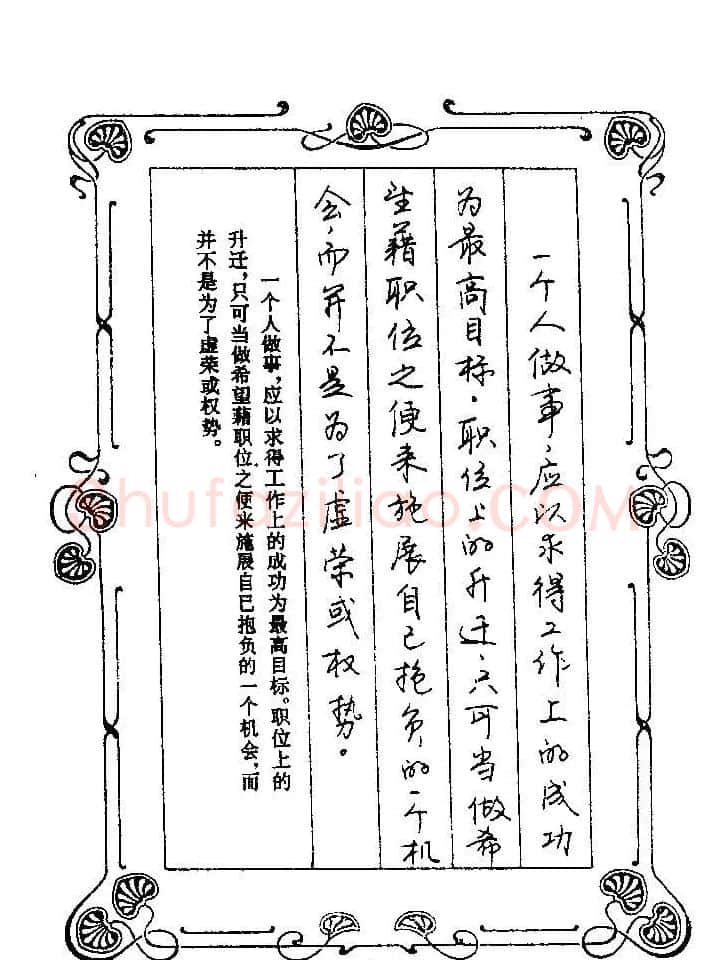 一个人做事,应以求得工作上的成功
为最高目标。职位上的升迁,只可当做希
望藉职位之便来施展自己抱负的一个机
会,而并不是为了虚荣或权势。
一个人做事,应以求得工作上的成功为最高目标。职位上的
升迁,只可当做希望藉职位之便来施展自已抱负的一个机会,而
并不是为了虚荣或权势。
Shufaziliao.COM